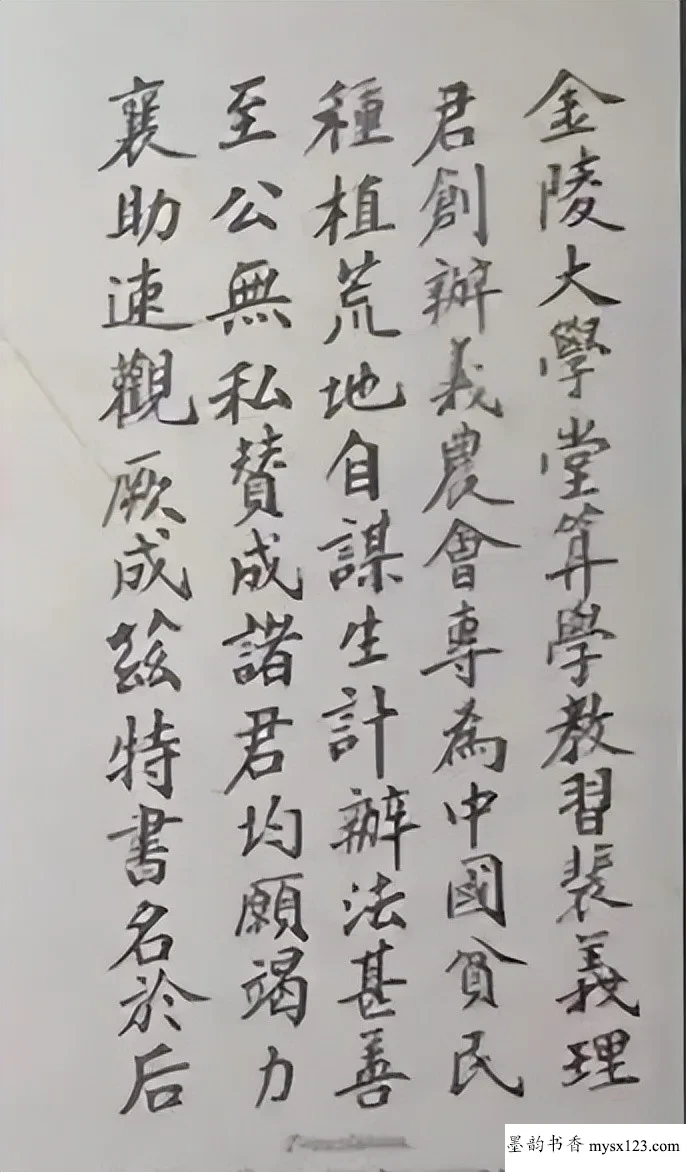 金陵大學堂算學教習裴義理
君創辦義農會專為中國貧民
種植荒地自謀生計辦法甚善
至公無私贊成諸君均願竭力
襄助速觀厥成茲特書名於后
墨韵书香 mysx123.com